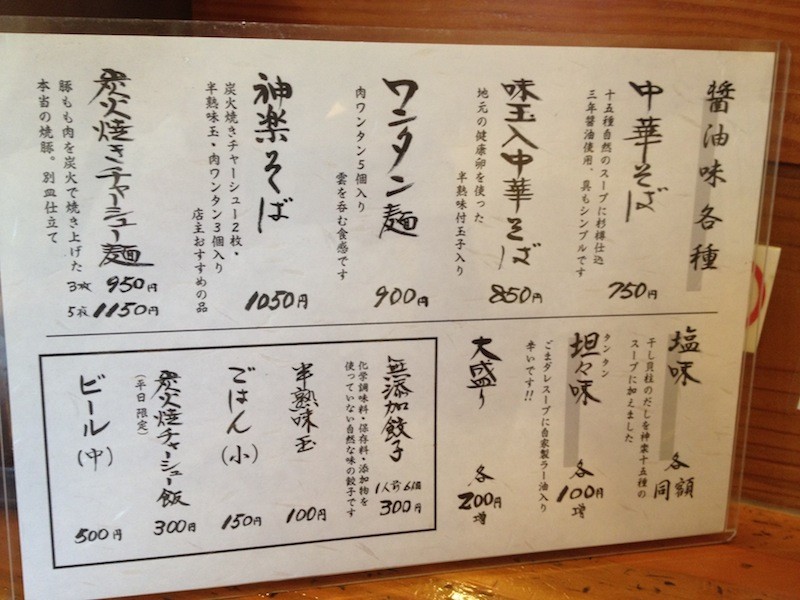 醤油味各種
中華そば
十五種自然のスープに杉樽仕込
三年醤油使用、具もシンプルです
750円
味玉入中華そば
地元の健康卵を使った
半熟味付玉子入り
850円
ワンタン麺
肉ワンタン5個入り
雲を呑む食感です
900円
神楽そば
炭火焼きチャーシュー2枚・
半熟味玉・肉ワンタン3個入り
店主おすすめの品
1050円
炭火焼きチャーシュー麺
豚もも肉を炭火で焼き上げた
本当の焼豚。別皿仕立て
3枚 950円
5枚 1150円
塩味
干し貝柱のだしを神楽十五種の
スープに加えました
各同額
タンタン
坦々味
ごまダレスープに自家製ラー油入り
辛いです!!
各100円増
大盛り
各200円増
無添加餃子
化学調味料・保存料・添加物を
使っていない自然な味の餃子です
1人前6個
300円
半熟味玉
100円
ごはん(小)
150円
炭火焼チャーシュー飯
(平日限定)
300円
ビール(中)
500円